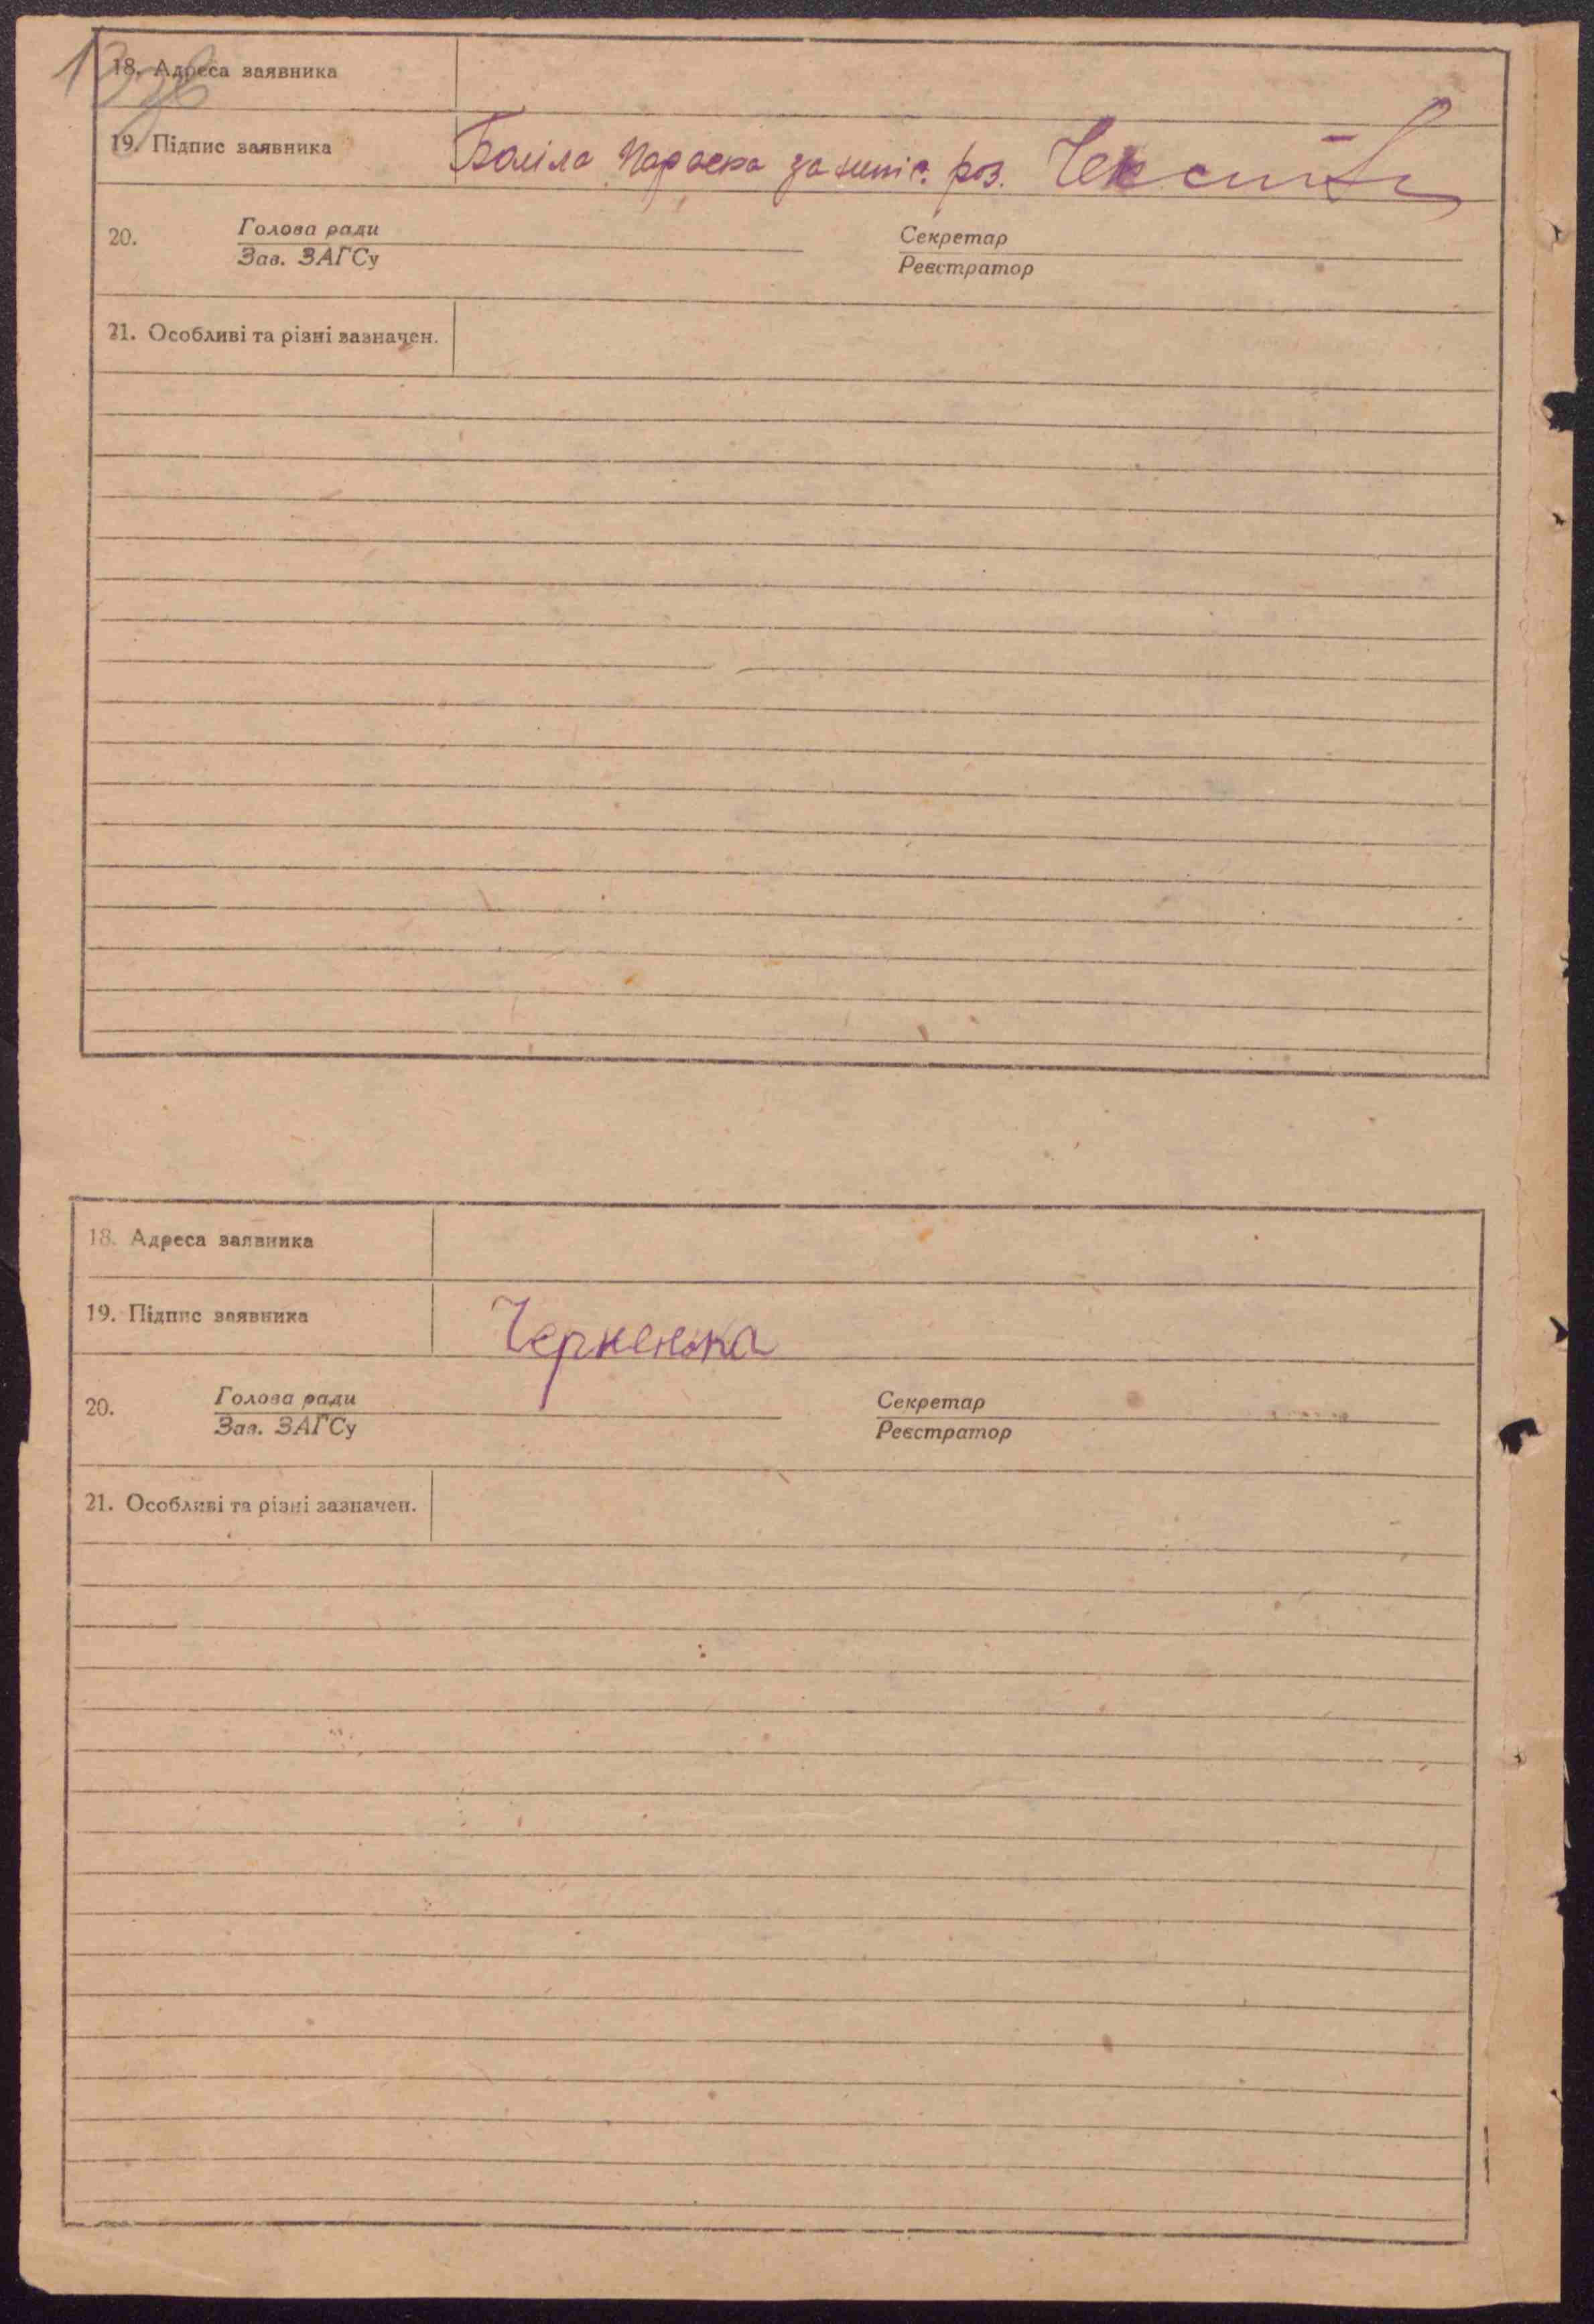 18. Адреса заявника
19. Підпис заявника
20. Голова ради Секретар
Зав. ЗАГСу Реєстратор
21. Особливі та різні зазначен.
18. Адреса заявника
19. Підпис заявника Черненька
20. Голова ради Секретар
Зав. ЗАГСу Реєстратор
21. Особливі та різні зазначен.